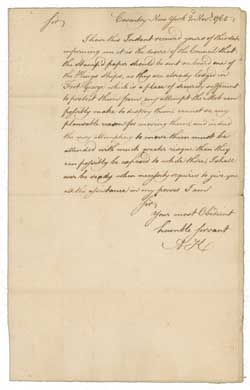 Sir Coventry New York 2 Nov. 1765
I have this Instant recived yours of this date
informing me it is the desire of the Council that
the Stamp'd paper should be sent on board one of
the Kings Ships, as they are already lodged in
Fort George which is a place of security sufficient
to protect them from any attempt the Mob can
possibly make to destroy them, I cannot see any
plausable reason for moving them and indeed
the very attempting to move them must be
attended with much greater risque than they
can possibly be exposed to while there, I shall
ever be ready when necessity requires to give you
all the assistance in my power I am
Sir
Your most Obedient
humble servant
A K